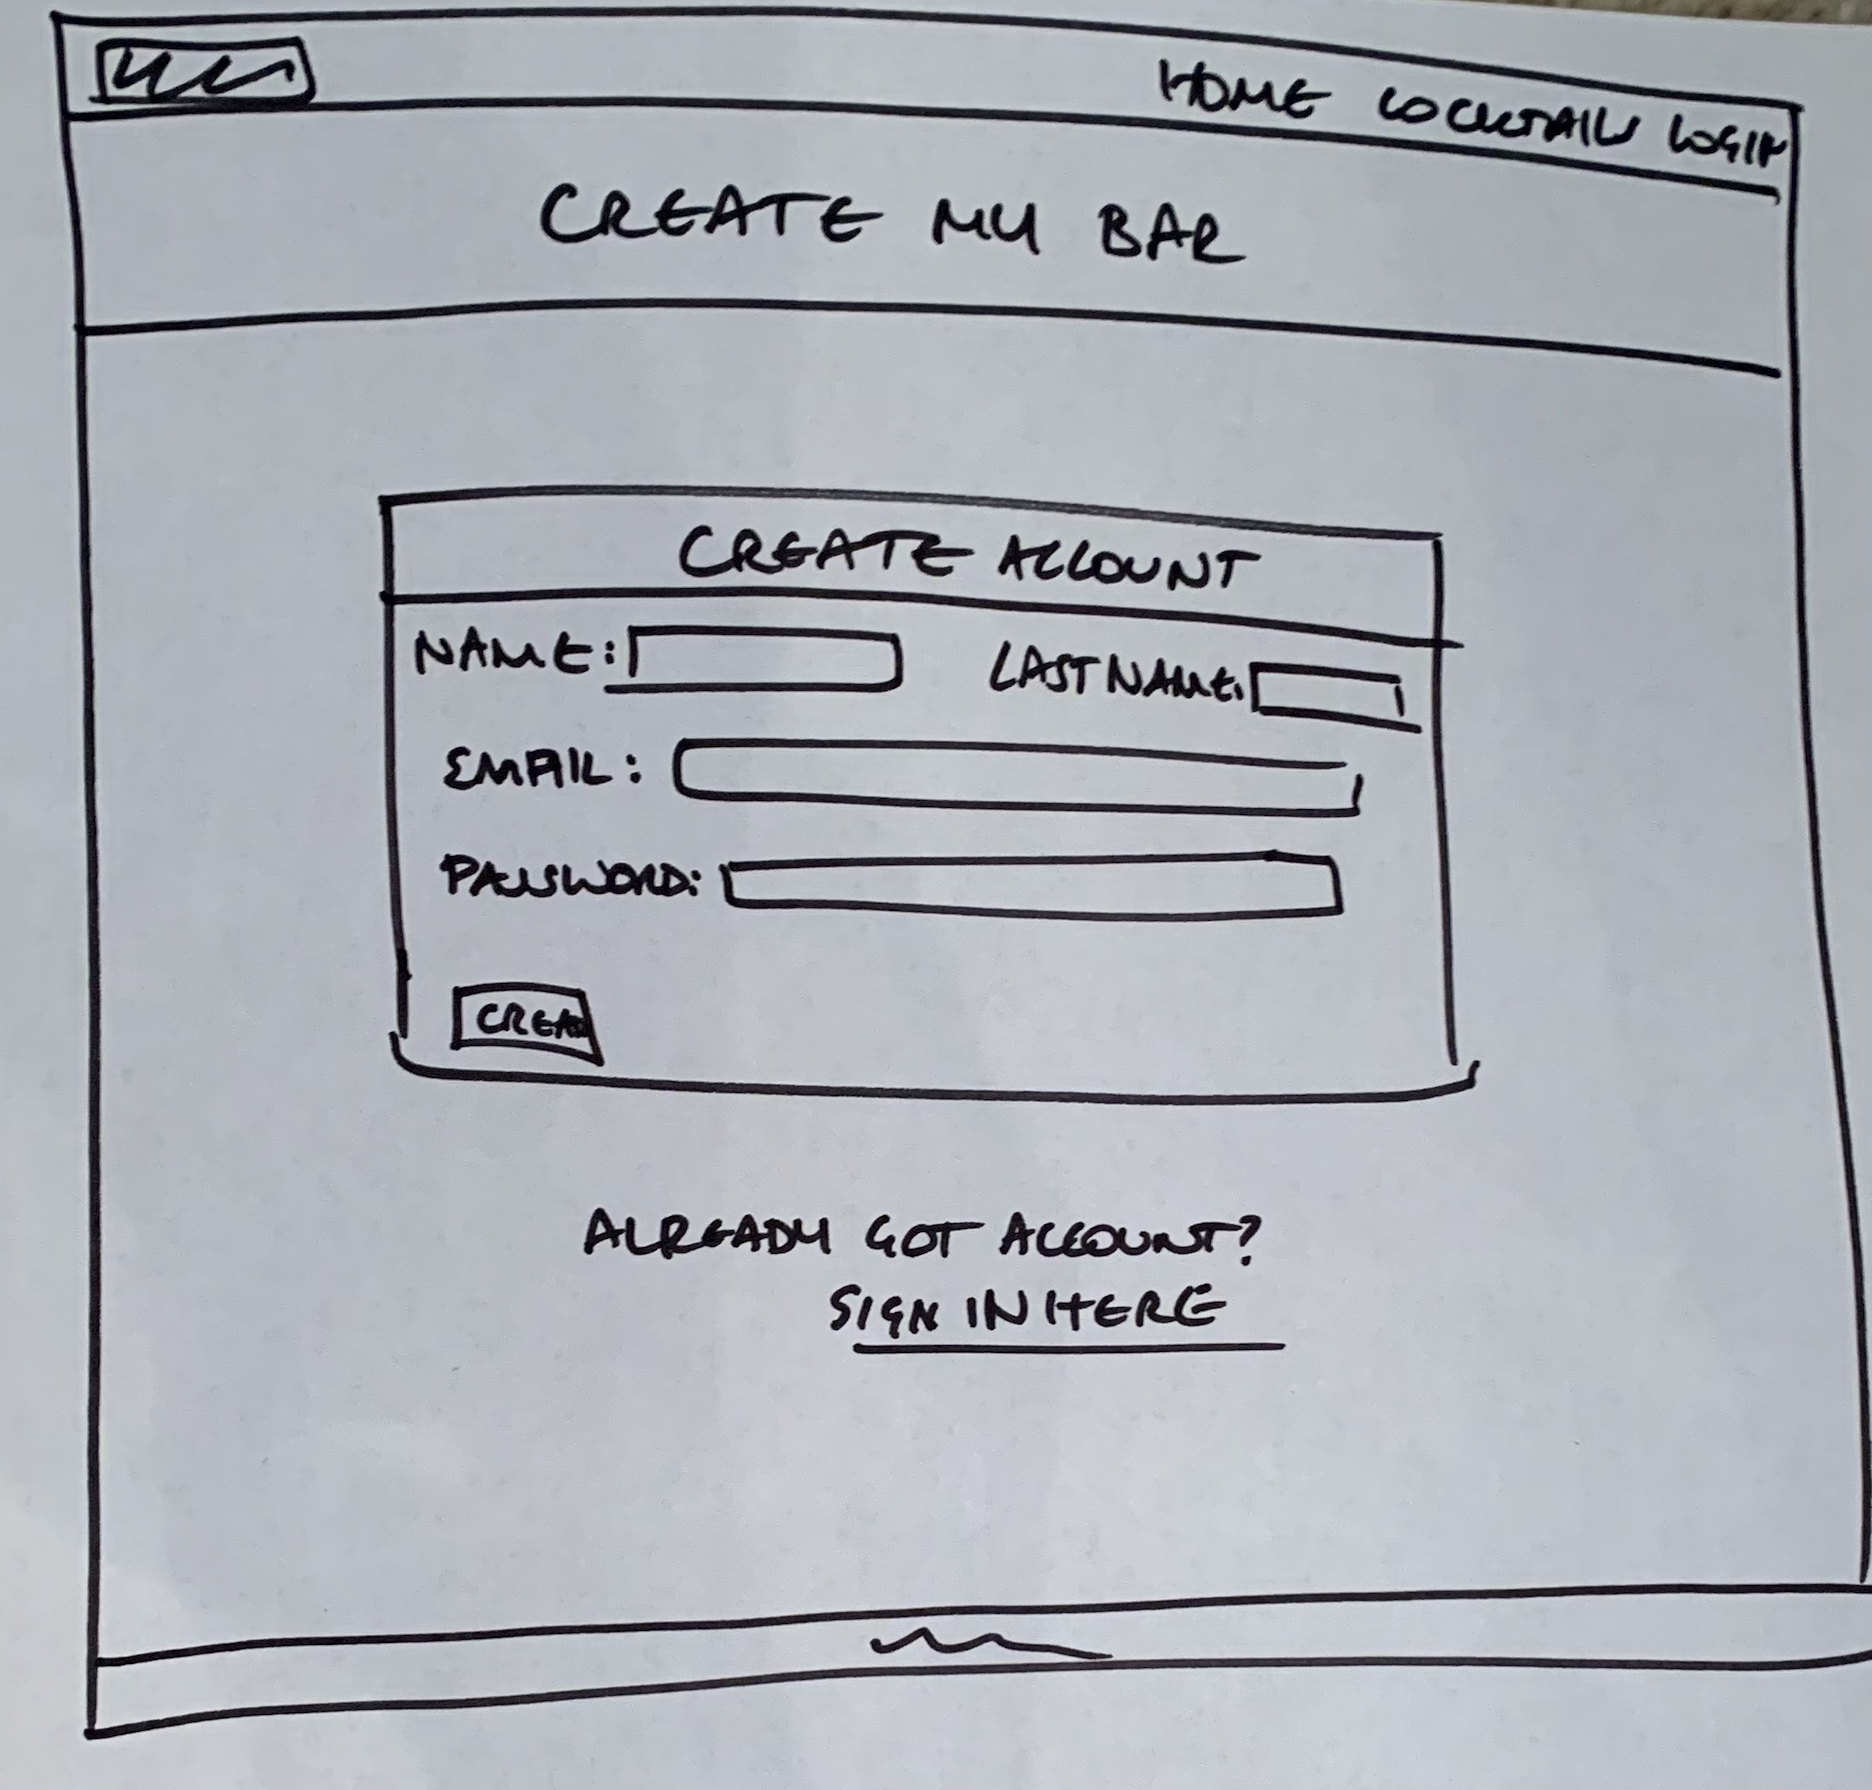 HOME COCKTAILS LOGIN
CREATE MY BAR
CREATE ACCOUNT
NAME: LAST NAME:
EMAIL:
PASSWORD:
CREA
ALREADY GOT ACCOUNT?
SIGN IN HERE